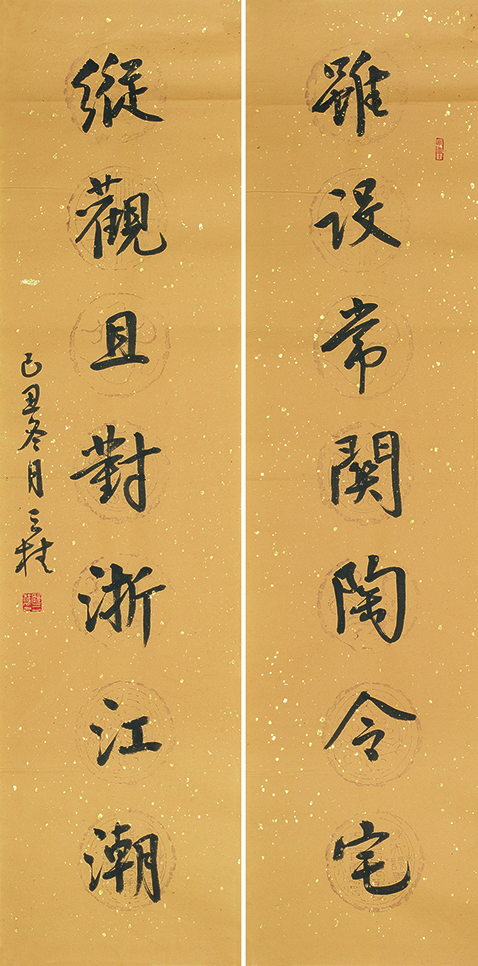 雖設常関陶令宅
縱觀且對浙江潮
己丑冬月